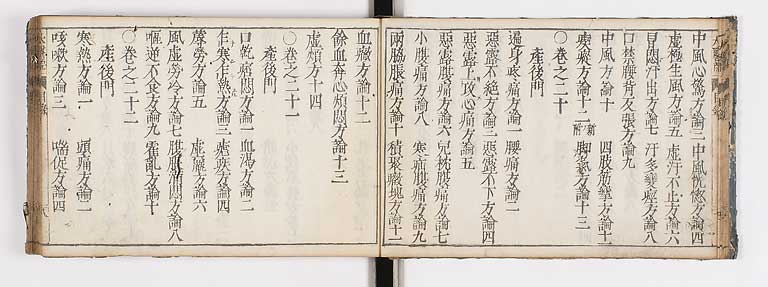 中風心驚方論三 中風恍惚方論四
虛極生風方論五 虛汗不止方論六
冒悶汗出方論七 汗多變痙方論八
口禁腰背反張方論九
中風方論十 四肢筋攣方論十一
瘈瘲方論十二 新附 脚氣方論十三
〇卷之二十
產後門
遍身疼痛方論一 腰痛方論二
惡露不絶方論三 惡露不下方論四
惡露上攻心痛方論五
惡露腹痛方論六 兒枕腹痛方論七
小腹痛方論八 寒疝腹痛方論九
兩脇脹痛方論十 積聚癥塊方論十一
血癥方論十二
餘血奔心煩悶方論十三
虛煩方論十四
〇卷之二十一
產後門
口乾煩悶方論一 血渴方論二
乍寒乍熱方論三 瘧疾方論四
蓐勞方論五 虛羸方論六
風虛勞冷方論七 腹脹滿悶方論八
嘔逆不食方論九 霍亂方論十
〇卷之二十二
產後門
寒熱方論一 頭痛方論二
咳嗽方論三 喘促方論四